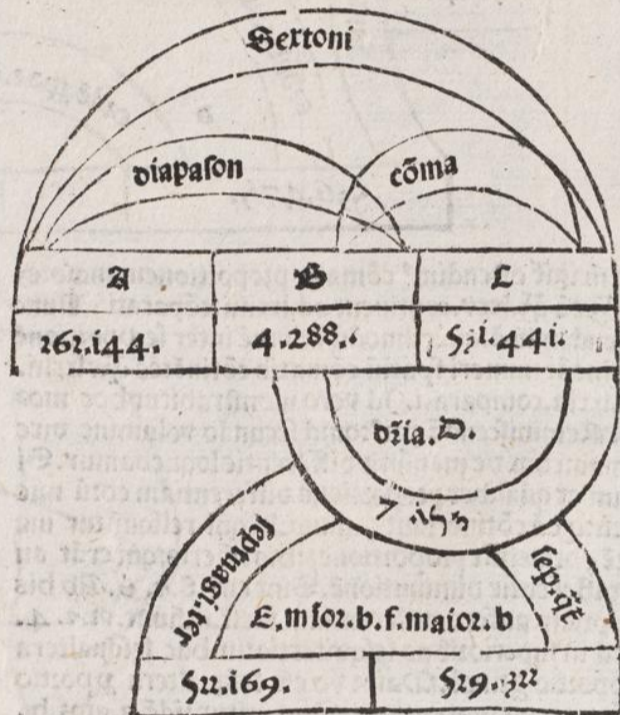 Sextoni
diapason cõma
A B C
262.i44. 4.288. 53i.44i.
dr̃ia. D.
7.i53
septuagi.ter sep.q̃t
E. mĩor. b. f. maior. b
522.i69. 5i9.322